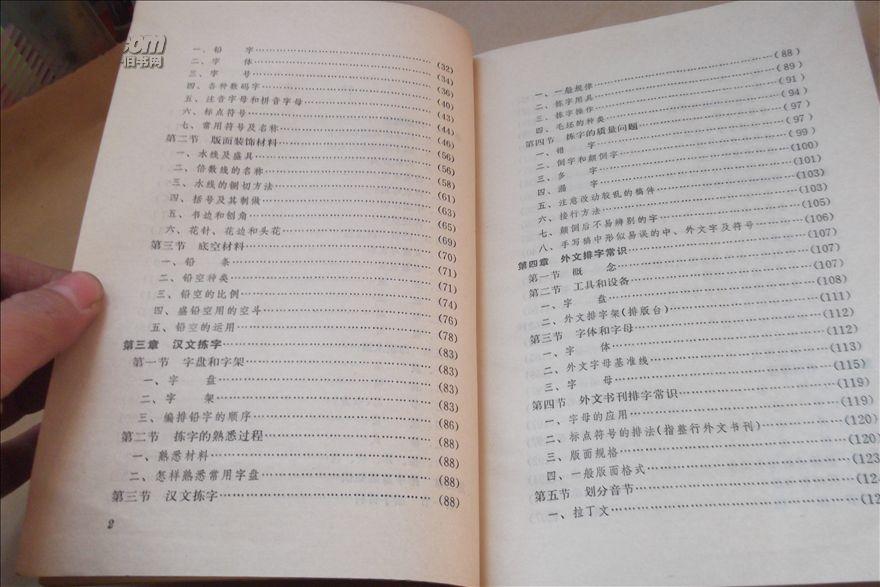 com
旧书网
一、铅　字……(32)
二、字　体……(34)
三、字　号……(36)
四、各种数码字……(40)
五、注音字母和拼音字母……(43)
六、标点符号……(44)
七、常用符号及名称……(46)
第二节　版面装饰材料……(56)
一、水线及盛具……(56)
二、倍数线的名称……(58)
三、水线的铡切方法……(61)
四、括号及其制做……(63)
五、书边和刨角……(65)
六、花针、花边和头花……(69)
第三节　底空材料……(70)
一、铅　条……(71)
二、铅空种类……(71)
三、铅空的比例……(74)
四、盛铅空用的空斗……(76)
五、铅空的运用……(78)
第三章　汉文拣字……(83)
第一节　字盘和字架……(83)
一、字　盘……(83)
二、字　架……(83)
三、编排铅字的顺序……(86)
第二节　拣字的熟悉过程……(88)
一、熟悉材料……(88)
二、怎样熟悉常用字盘……(88)
第三节　汉文拣字……(88)
2
一、一般规律……(88)
二、拣字用具……(89)
三、拣字操作……(91)
四、毛坯的种类……(94)
第四节　拣字的质量问题……(97)
一、错　字……(97)
二、倒字和颠倒字……(99)
三、多　字……(100)
四、漏　字……(101)
五、注意改动较乱的稿件……(103)
六、接行方法……(103)
七、颠倒后不易辨别的字……(105)
八、手写稿中形似易误的中、外文字及符号……(106)
第四章　外文排字常识……(107)
第一节　概　念……(107)
第二节　工具和设备……(107)
一、字　盘……(108)
二、外文排字架(排版台)……(111)
第三节　字体和字母……(112)
一、字　体……(112)
二、外文字母基准线……(113)
三、字　母……(115)
第四节　外文书刊排字常识……(119)
一、字母的应用……(119)
二、标点符号的排法(指整行外文书刊)……(120)
三、版面规格……(120)
四、一般版面格式……(123
第五节　划分音节……(12
一、拉丁文……(12